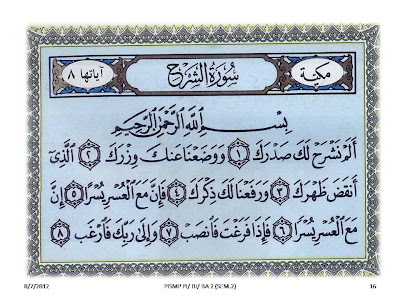 مكية سورة الشرح آياتها ٨
بسم الله الرحمن الرحيم
ألم نشرح لك صدرك ١ ووضعنا عنك وزرك ٢ الذي
أنقض ظهرك ٣ ورفعنا لك ذكرك ٤ فإن مع العسر يسرا ٥ إن
مع العسر يسرا ٦ فإذا فرغت فانصب ٧ وإلى ربك فارغب ٨
8/2/2012 PISMP PI/ BI/ BA 2 (SEM.2) 16